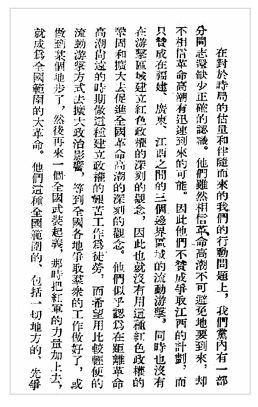 在對於時局的估量和伴隨而來的我們的行動問題上，我們黨內有一部
分同志還缺少正確的認識。他們雖然相信革命高潮不可避免地要到來，却
不相信革命高潮有迅速到來的可能。因此他們不贊成爭取江西的計劃，而
只贊成在福建、廣東、江西之間的三個邊界區域的流動游擊，同時也沒有
在游擊區域建立紅色政權的深刻的觀念，因此也就沒有用這種紅色政權的
鞏固和擴大去促進全國革命高潮的深刻的觀念。他們似乎認為在距離革命
高潮尚遠的時期做這種建立政權的艱苦工作為徒勞，而希望用比較輕便的
流動游擊方式去擴大政治影響，等到全國各地爭取羣衆的工作做好了，或
做到某個地步了，然後再來一個全國武裝起義，那時把紅軍的力量加上去，
就成為全國範圍的大革命。他們這種全國範圍的、包括一切地方的、先爭